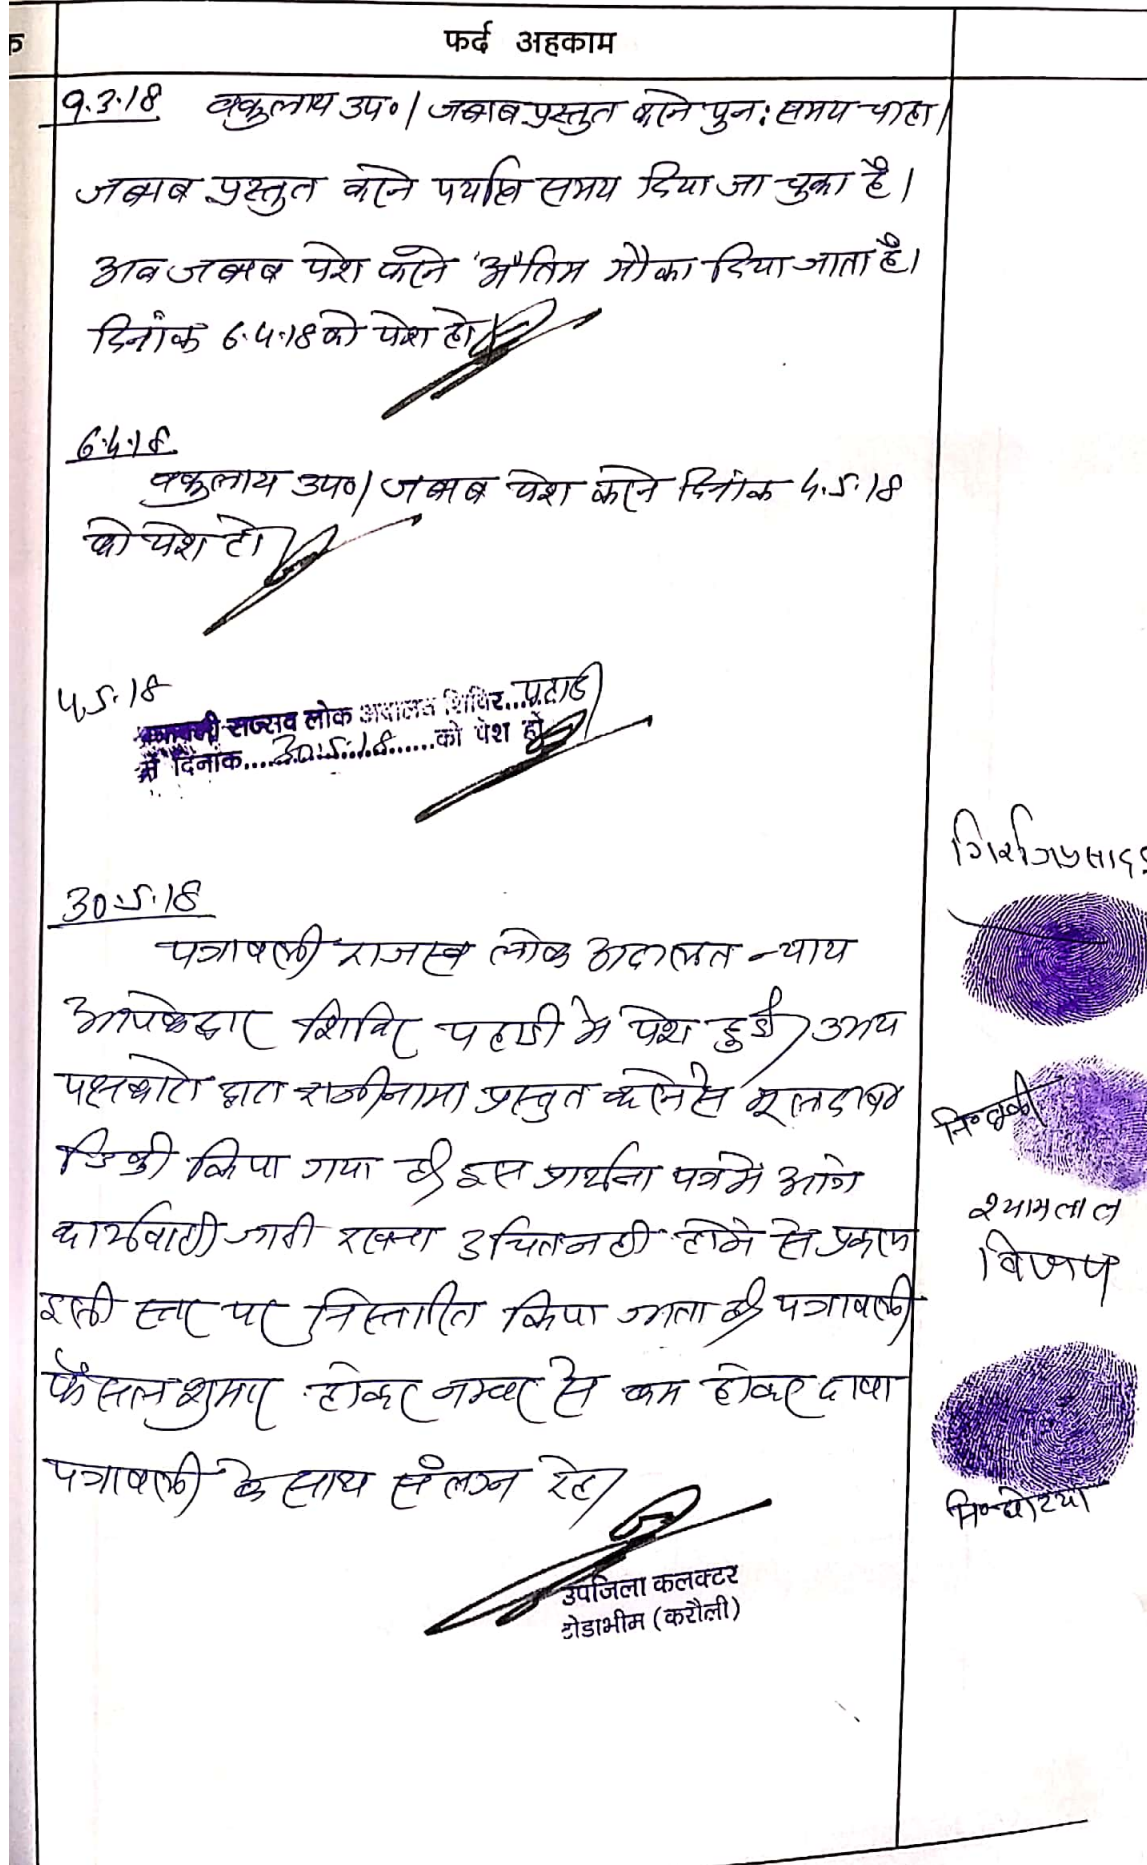 फर्द अहकाम
9.3.18 वकुलाय उप०। जबाब प्रस्तुत करने पुन: समय चाहा।
जबाब प्रस्तुत करने पर्याप्त समय दिया जा चुका है।
अब जबाब पेश करने अंतिम मौका दिया जाता है।
दिनांक 6.4.18 को पेश हो।
6.4.18
वकुलाय उप०। जबाब पेश करने दिनांक 4.5.18
को पेश हो।
4.5.18
राजस्व लोक अदालत शिविर... पहाडी
में दिनांक....30.5.18......को पेश हो
30.5.18
पत्रावली राजस्व लोक अदालत न्याय
आपकेद्वार शिविर पहाडी मे पेश हुई। उभय
पक्षकारो द्वारा राजीनामा प्रस्तुत करनेसे मूलदावा
डिक्री किया गया है। इस प्रार्थना पत्रमे आगे
कार्यवाही जारी रखना उचित नही होने से प्रकरण
इसी स्तर पर निस्तारित किया जाता है। पत्रावली
फैसल शुमार होकर नम्बर से कम होकर दावा
पत्रावली के साथ संलग्न रहे।
उपजिला कलक्टर
टोडाभीम (करौली)
गिर्राजप्रसाद
श्यामलाल
विजय